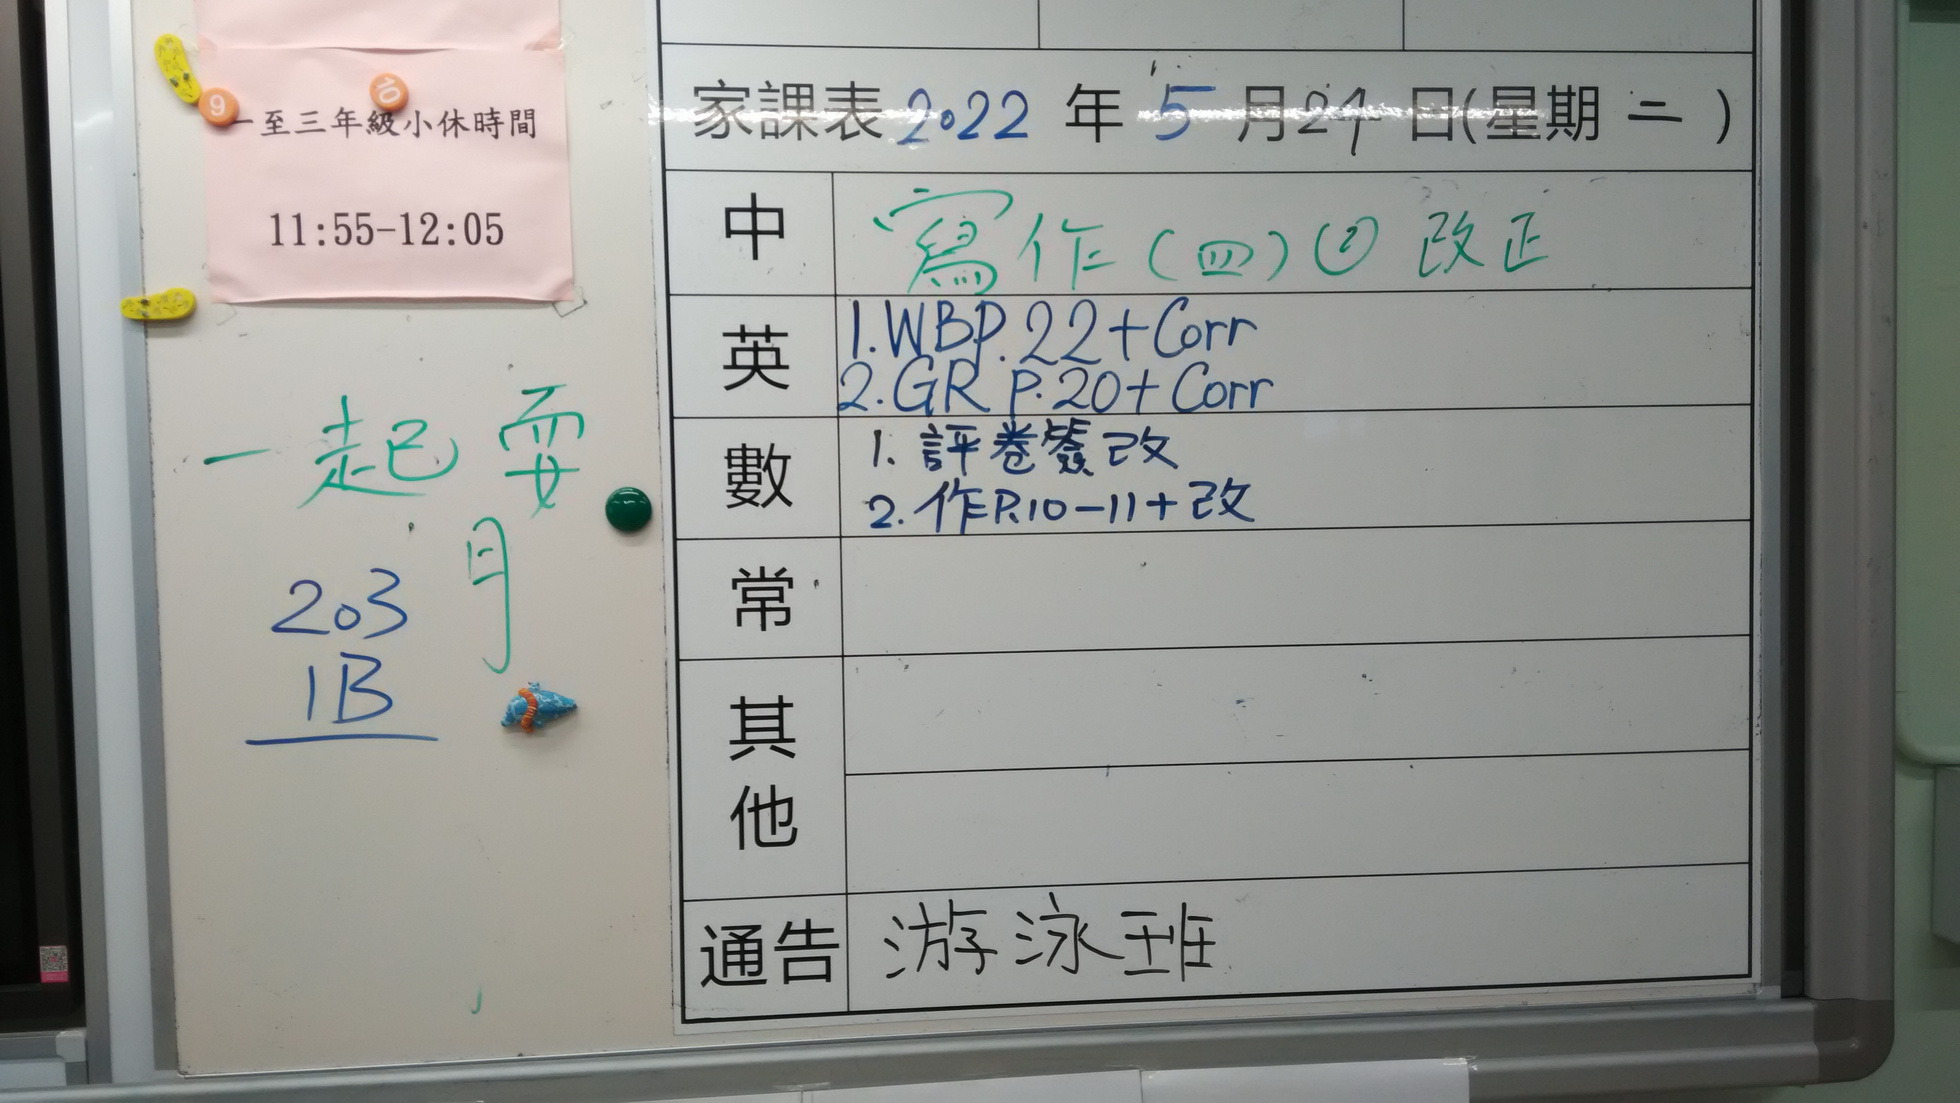 一至三年級小休時間
11:55-12:05
一起耍
月
203
1B
家課表 2022 年 5 月 24 日(星期 二 )
中 寫作(四)② 改正
英 1. WB P.22 + Corr
2. GR P.20 + Corr
數 1. 評卷簽改
2. 作P.10-11 + 改
常
其他
通告 游泳班
9
10